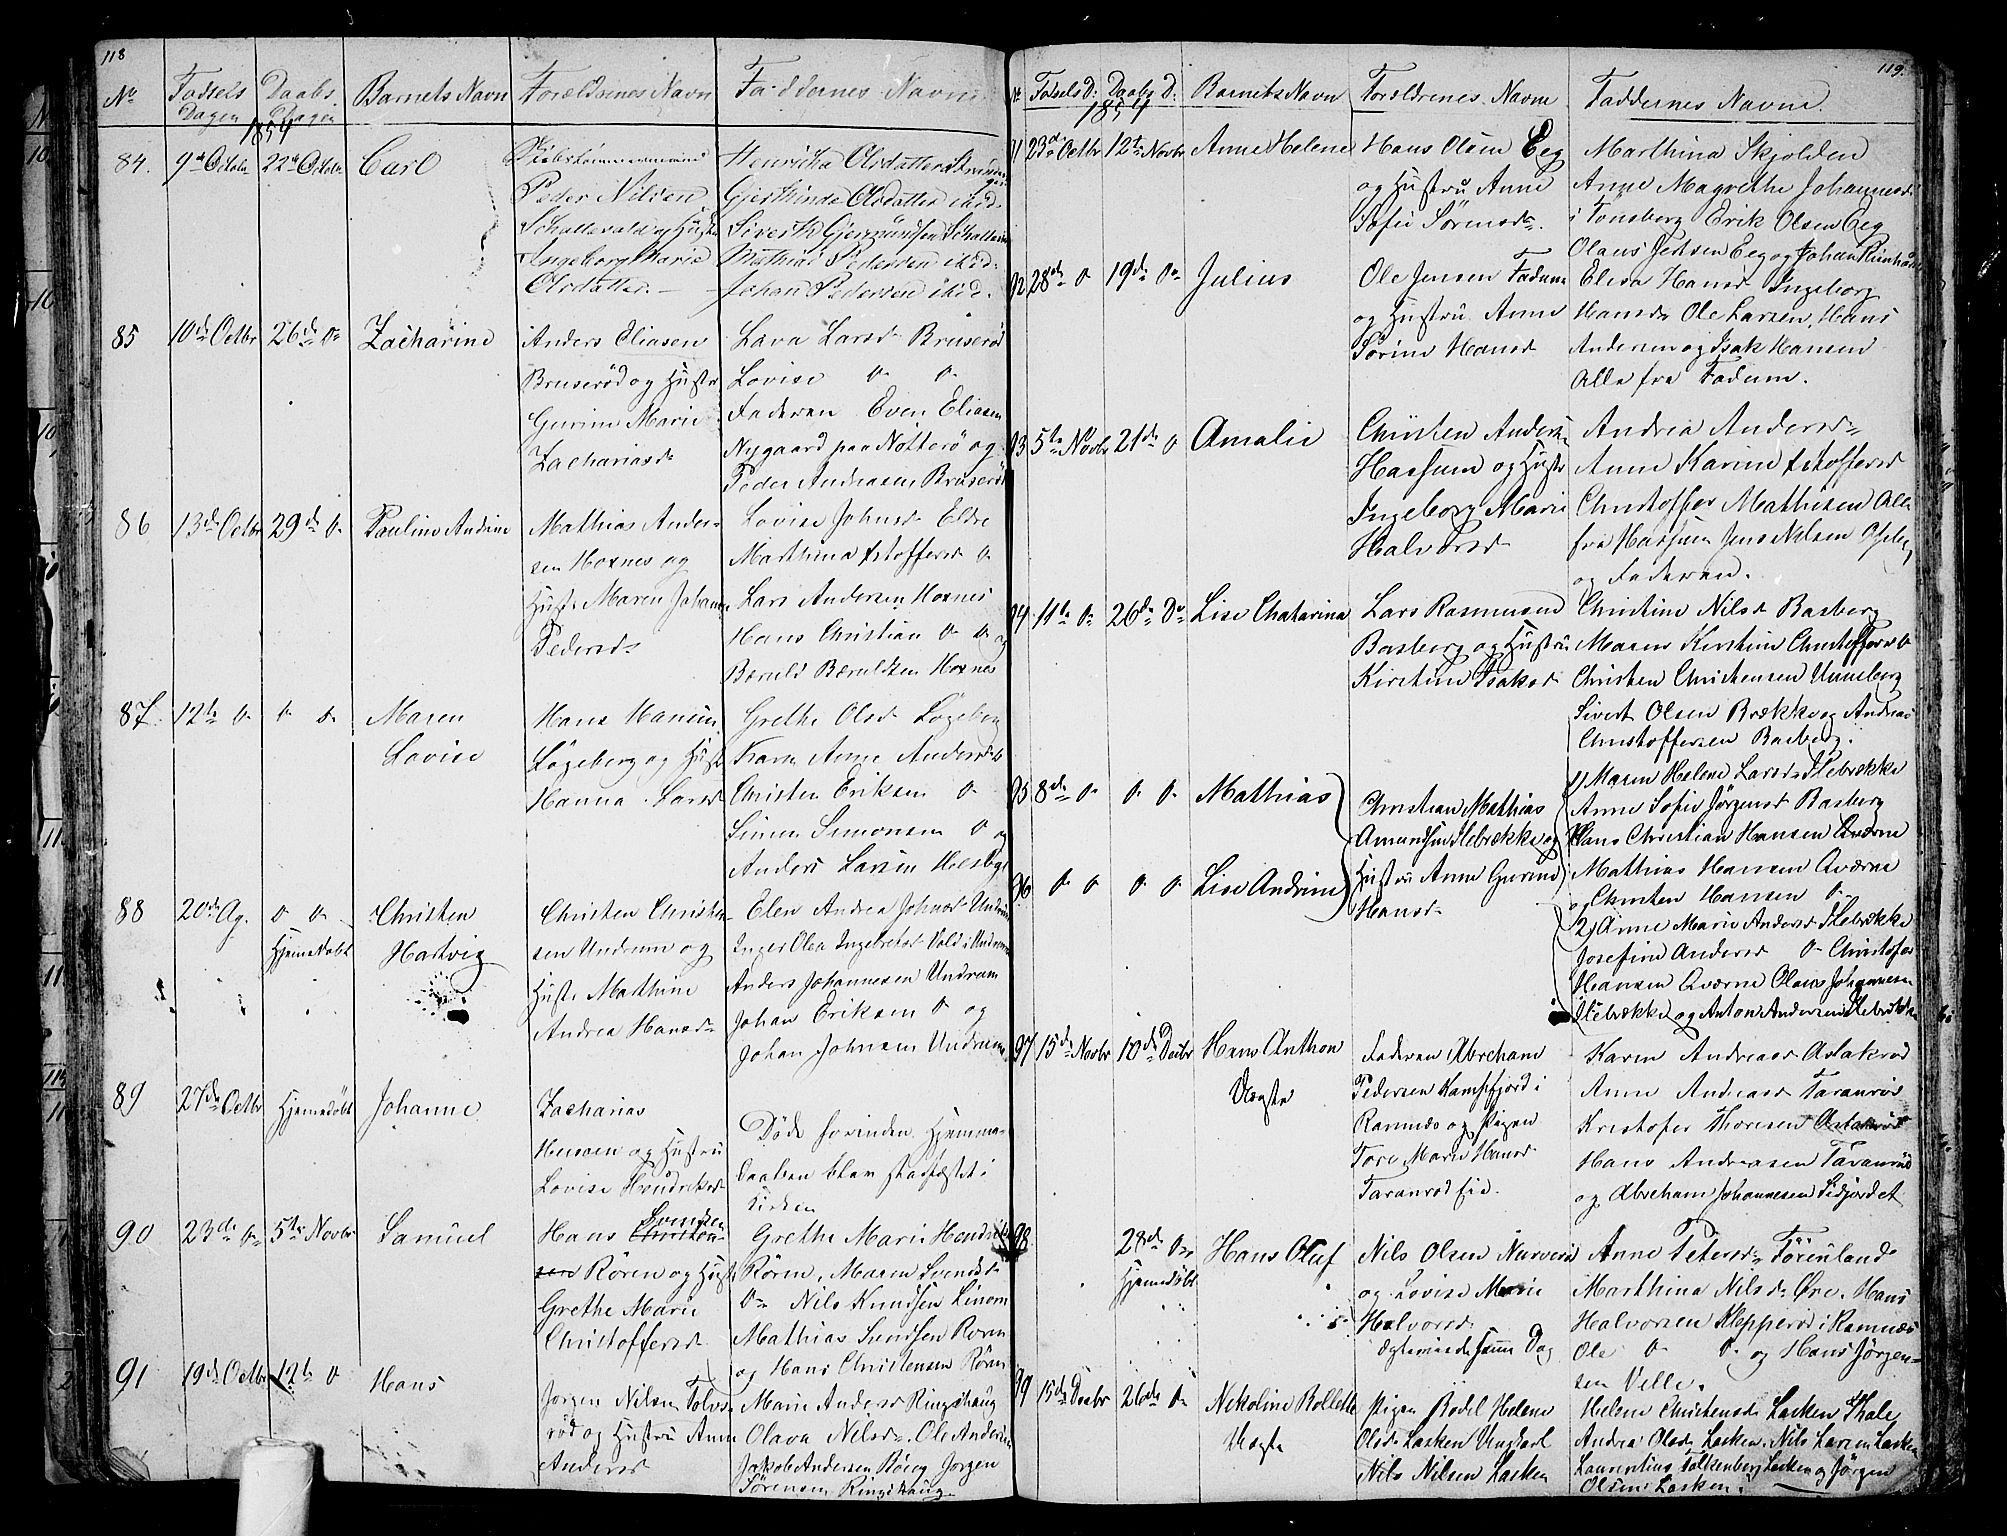 118
No Fødsels Dagen Daabs Dagen Barnets Navn Forældrenes Navn Faddernes Navn
1854
84. 9de Octobr 22de Octobr Carl
Peder Nilsen
Ingeborg Marie
Olsdatter.
Henrikka Olsdatter
Gjerthinde Olsdatter ibid.
Mathias Pedersen ibid.
Johan Pedersen ibid.
85 10de Octbr 26de do Zacharine
Anders Eliasen
Bruserød og Hustr
Gurine Marie
Zachariasdr
Lava Larsd Bruserød
Lovise do do
Faderen Even Eliasen
Nygaard paa Nøtterø og
Peder Andreasen Bruserød
86 13de Octbr 29de do Pauline Andrine
Mathias Ander-
sen Hoxnes og
Hustr Maren Johanne
Pedersdr
Lovise Johnsd Eldre
Marthina Xstoffersd do
Lars Andersen Hoxnes
Hans Christian do do og
Bæruld Bæruldsen Hoxnes
87. 12te do do do Maren
Lovise
Hans Hansen
Løgeberg og Hustr
Hanna Larsd
Grethe Olsd Løgeberg
Karen Anne Andersd do
Christen Eriksen do
Simen Simonsen do og
Anders Larsen Hesby
88 20de Ag. do do Christen
Hjemedøbt Hartvig
Christen Christen-
sen Undrum og
Hustr Mathine
Andrea Hansdr
Elen Andrea Johnsd Undrum
Inger Olea Ingebretsd Vold i Undrum
Anders Johannesen Undrum
Johan Eriksen do og
Johan Johnsen Undrum
89 27de Octbr Hjemedøbt Johanne
Zacharias
Hansen og Hustru
Lovise Hendriksd
Døde forinden Hjemme-
daaben blev stadfæstet i
Kirken
90 23de do 5te Novbr Samuel
Hans Christen- Svendsen
sen Røren og Hustr
Grethe Marie
Christoffersd
Grethe Marie Hendriks
Røren, Maren Svendsd
do Nils Knudsen Linom
Mathias Svendsen Roren
og Hans Christensen Røren
91 19de Octbr 12te do Hans
Jørgen Nilsen Tolvs-
rød og Hustru Anne
Andersd
Marie Andersd Ringshaug
Olava Nilsd. Ole Andersen
Jakob Andersen Bø og Jørgen
Sørensen Ringshaug
119.
No Fødsels D: Daabs D: Barnets Navn Forældrenes Navne Faddernes Navne.
1854
91 23de Octbr 12te Novbr Anne Helene
Hans Olsen Eeg
og Hustru Anne
Sofie Sørensdr.
Marthina Skjolden
Anne Magrethe Johannesd
i Tønsberg Erik Olsen Eeg
Olaus Jensen Eeg og Johan
92 28de do 19de do Julius
Ole Jensen Fadum
og Hustru Anne
Sørine Hansd
Elisa Hansd Ingeborg
Hansdr Ole Larsen, Hans
Andersen og Isak Hansen
Alle fra Fadum.
93 5te Novbr 21de do Amalie
Christen Anders
Hassum og Hustr
Ingeborg Marie
Halvorsd
Andrea Andersdr
Anne Karine Xstoffersd
Christoffer Mathisen Alle
fra Hassum Jens Nilsen Oseberg
og Faderen.
94 11te do 26de Do Lise Chatarina
Lars Rasmusen
Basberg og Hustru
Kirstine Isaksd
Christine Nilsd Basberg
Maren Kirstine Christoffersd do
Christen Christensen Unneberg
Sivert Olsen Brække og Andreas
Christoffersen Basberg.
95 8de do do do Mathias
96 do do do do Lise Andrine
Christian Mathias
Amundsen Ilebrække og
Hustru Anne Gurine
Hansd
1) Maren Helene Larsd Ilebrække
Anne Sofie Jørgensd Basberg
Hans Christian Hansen Aværne
Mathias Hansen Aværne
og Christen Hansen do
2) Anne Marie Andersd Ilebrække
Josefine Andersd do Christofer
Hansen Aværne Olaus Johannesen
Ilebrække og Anton Andersen Ilebrække
97 15de Novbr 10de Decbr Hans Anthon
Uægte
Faderen Abraham
Pedersen Kampfjord i
Ramnæs og Pigen
Tore Marie Hansd
Taranrød Eie.
Karen Andreasd Aslakrød
Anne Andreasd Taranrød
Kristofer Thoresen Aslakrød
Hans Andreasen Taranrød
og Abraham Johannesen Sidjordet
98. 28de do Hans Oluf
Hjemedøbt
Nils Olsen
og Lovise Marie
Halvorsd
Ægteviede samme Dag
Anne Petersdr
Marthina Nilsdr Øre. Hans
Halvorsen Klepperød i Ramnæs
Ole do do og Hans Jørgen-
sen Velle.
99 15de Decbr 26de do Nikoline Bollette
Uægte
Pigen Bodel Helene
Olsd Lasken Ungkarl
Nils Nilsen Lasken
Helene Christensd Lasken Thale
Andrea Olsd Lasken. Nils Larsen Lasken
Laurentius Falkenberg Lasken og Jørgen
Olsen Lasken.